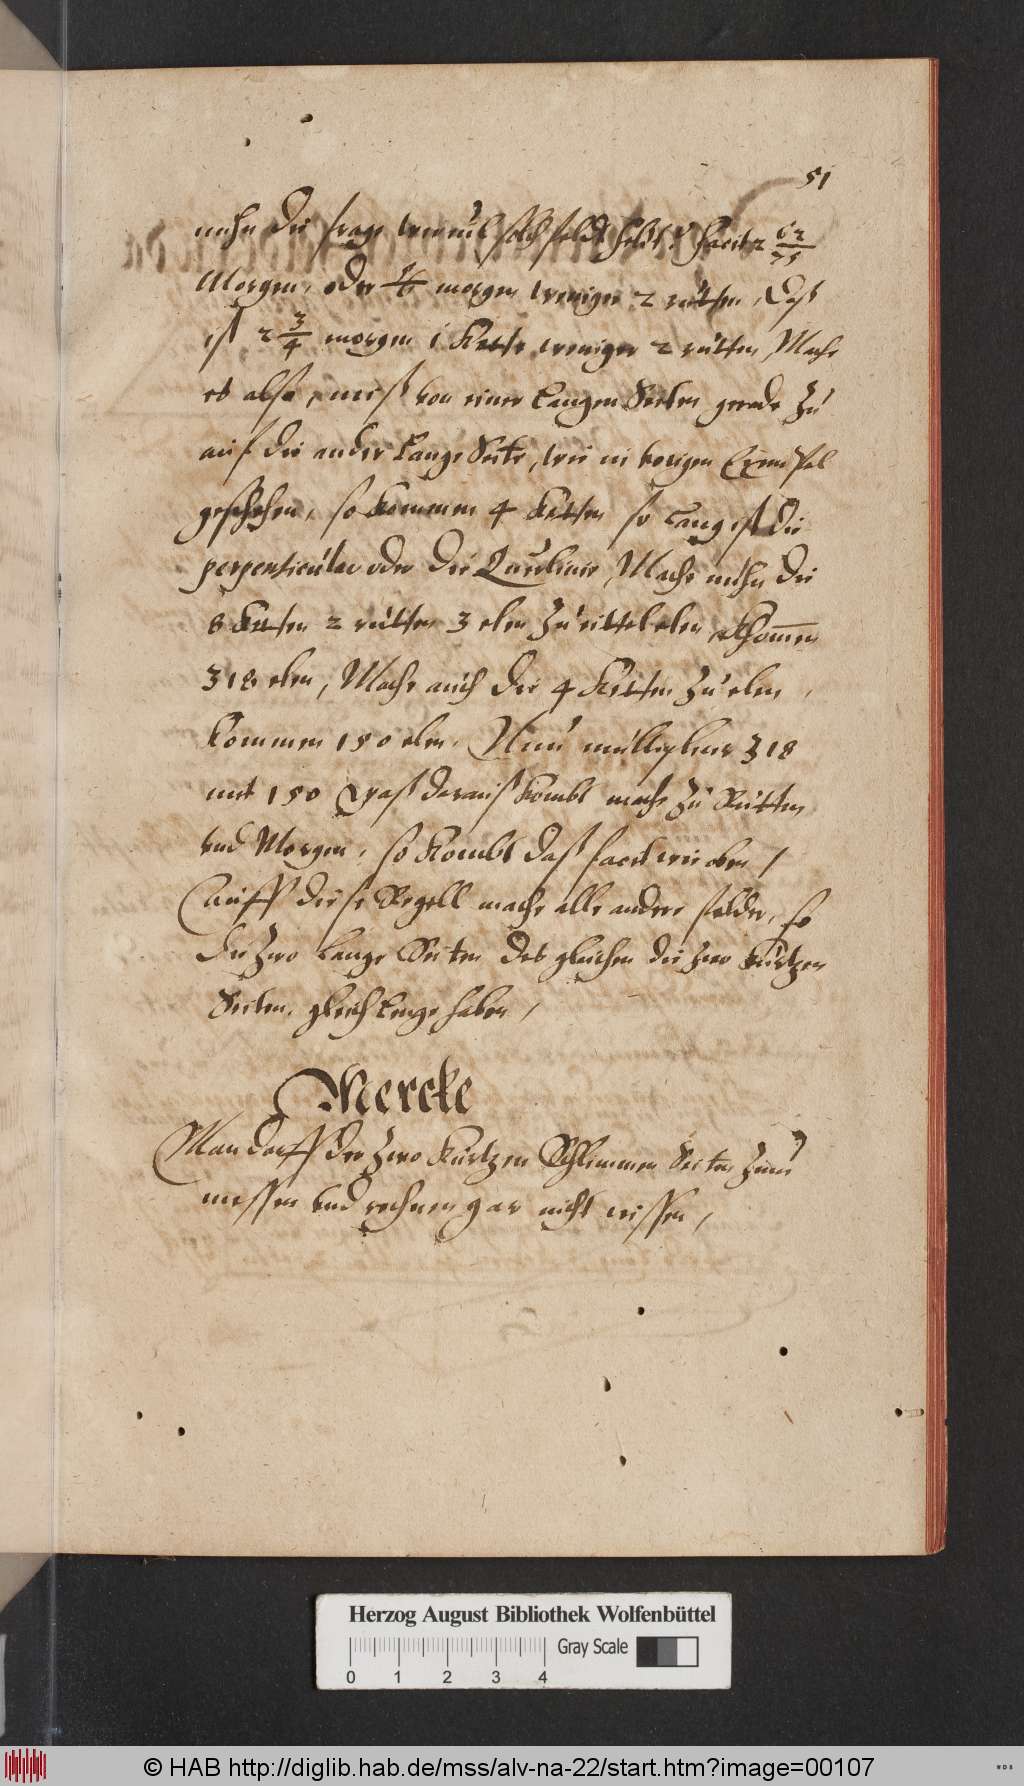 51
nuhn die frage wieuiel solch feldt helt? facit 2 62/75
Morgen, oder morgen weniger 2 rutten, Daß
ist 2 3/4 morgen 1 Kette weniger 2 rutten, Mache
es also, miß von einer Langen Seiten gerade zu
auf die ander Lange Seite, wie im vorigen Exempel
geschehen, so Kommen 4 Ketten so lang ist die
perpenticular oder die Linie, Mache nuhn die
8 Ketten 2 rutten 3 elen zu eittel elen, Khommen
318 elen, Mache auch die 4 Ketten zu elen,
Kommen 150 elen. Nuu multiplicir 318
mit 150 Waß darauß Kombt mache zu Rutten
vnd Morgen, so Kombt daß facit wie oben /
Auff diese Regell mache alle andere felder, so
die zwo Lange Seiten des gleichen die zwo Kurtzen
Seiten, gleich Lenge haben /
Mercke
Man darff die zwo Kurtzen Schlimmen Seiten zum
messen vnd rechnen gar nicht wissen /
Herzog August Bibliothek Wolfenbüttel
Gray Scale
0 1 2 3 4
© HAB http://diglib.hab.de/mss/alv-na-22/start.htm?image=00107